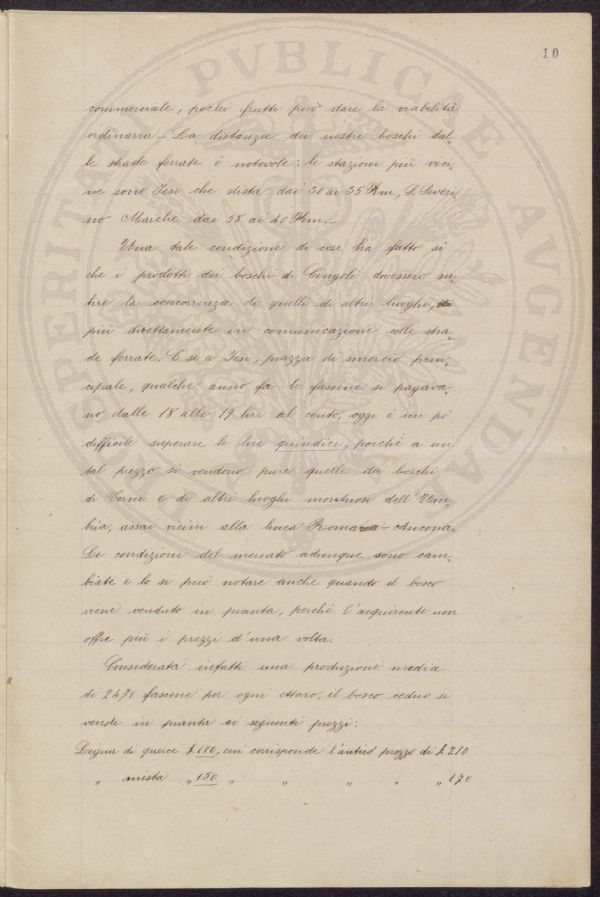 10
commerciale, pochi frutti può dare la viabilità
ordinaria - La distanza dei nostri boschi dal-
le strade ferrate è notevole: le stazioni più vici-
ne sono Iesi che dista dai 30 ai 35 Km, S. Severi-
no Marche dai 35 ai 40 Km. -
Una tale condizione di cose ha fatto sì
che i prodotti dei boschi di Cingoli dovessero su-
bire la concorrenza di quelli di altri luoghi,
più direttamente in comunicazione colle stra-
de ferrate. E se a Iesi, piazza di smercio prin-
cipale, qualche anno fa le fascine si pagava-
no dalle 18 alle 19 lire al cento, oggi è un pò
difficile superare le lire quindici, poichè a un
tal prezzo si vendono pure quelle dei boschi
di Terni e di altri luoghi montuosi dell'Um-
bria, assai vicini alla linea Roma - Ancona.
Le condizioni del mercato adunque sono cam-
biate e lo si può notare anche quando il bosco
viene venduto in pianta, perchè l'acquirente non
offre più i prezzi d'una volta.
Considerata infatti una produzione media
di 2470 fascine per ogni ettaro, il bosco ceduo si
vende in pianta ai seguenti prezzi:
Legna di querce £ 180, cui corrisponde l'antico prezzo di £ 210
" mista " 150 " " " " " 170
PROSPERITATI PVBLICAE AVGENDAE